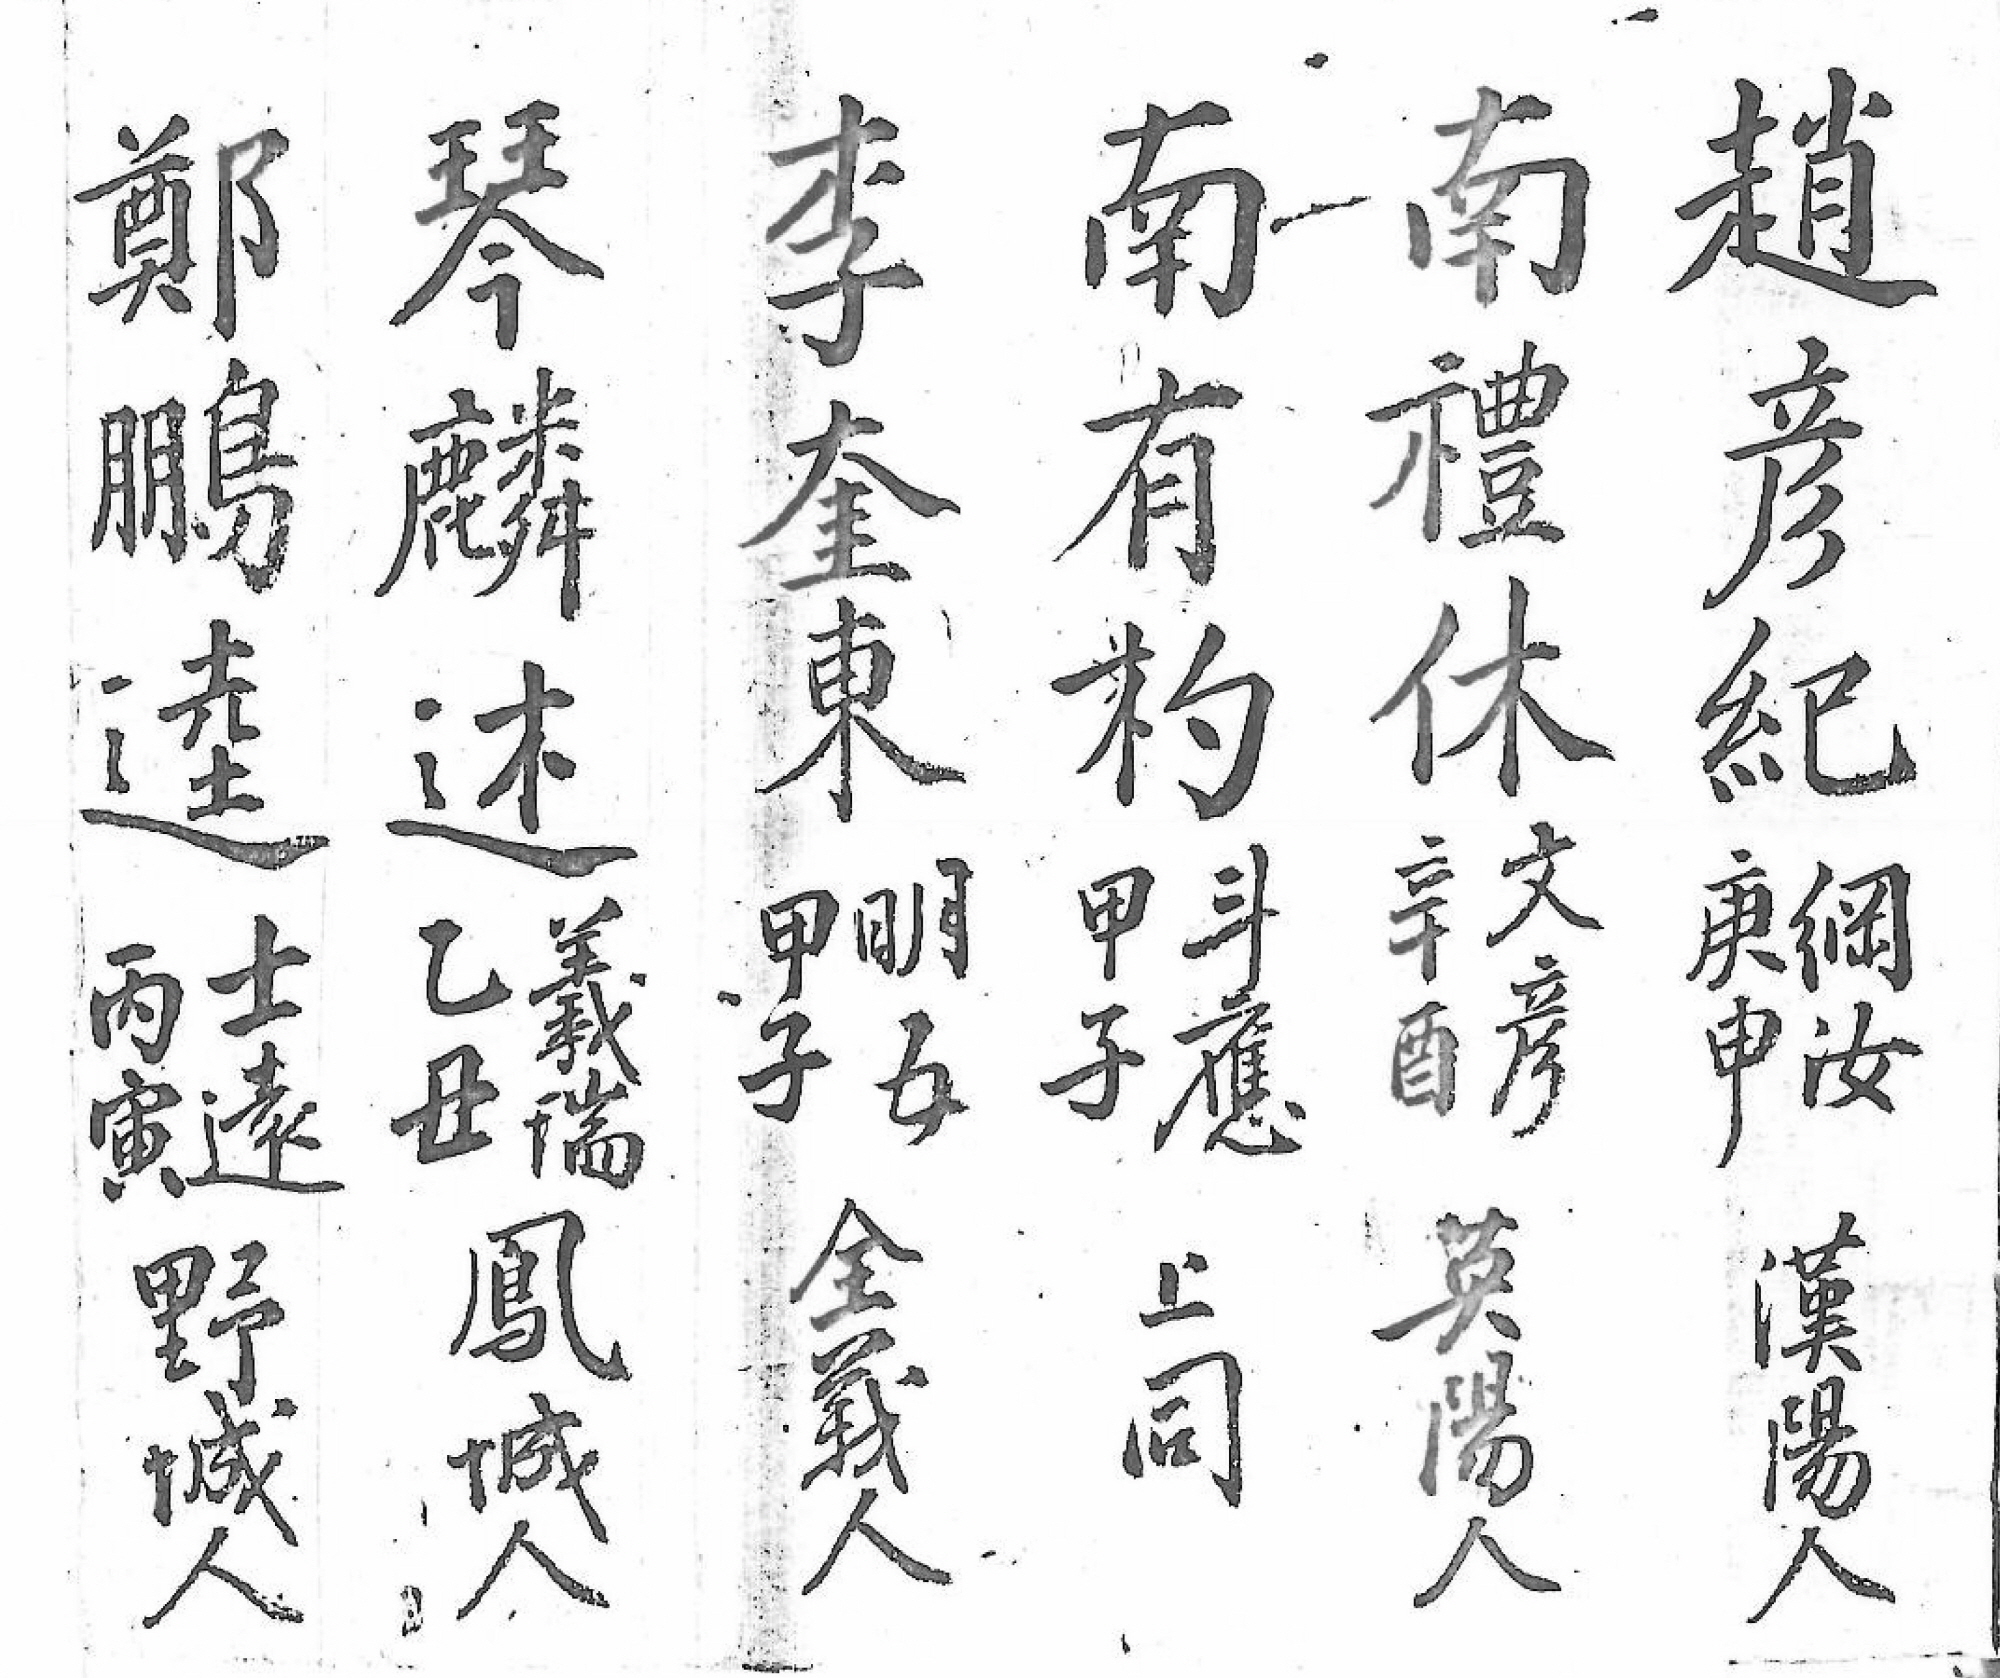 趙彦紀 綱汝 庚申 漢陽人
南禮休 文彦 辛酉 英陽人
南有杓 斗應 甲子 上同
李奎東 明五 甲子 全義人
琴麟述 義瑞 乙丑 鳳城人
鄭鵬逵 士遠 丙寅 野城人